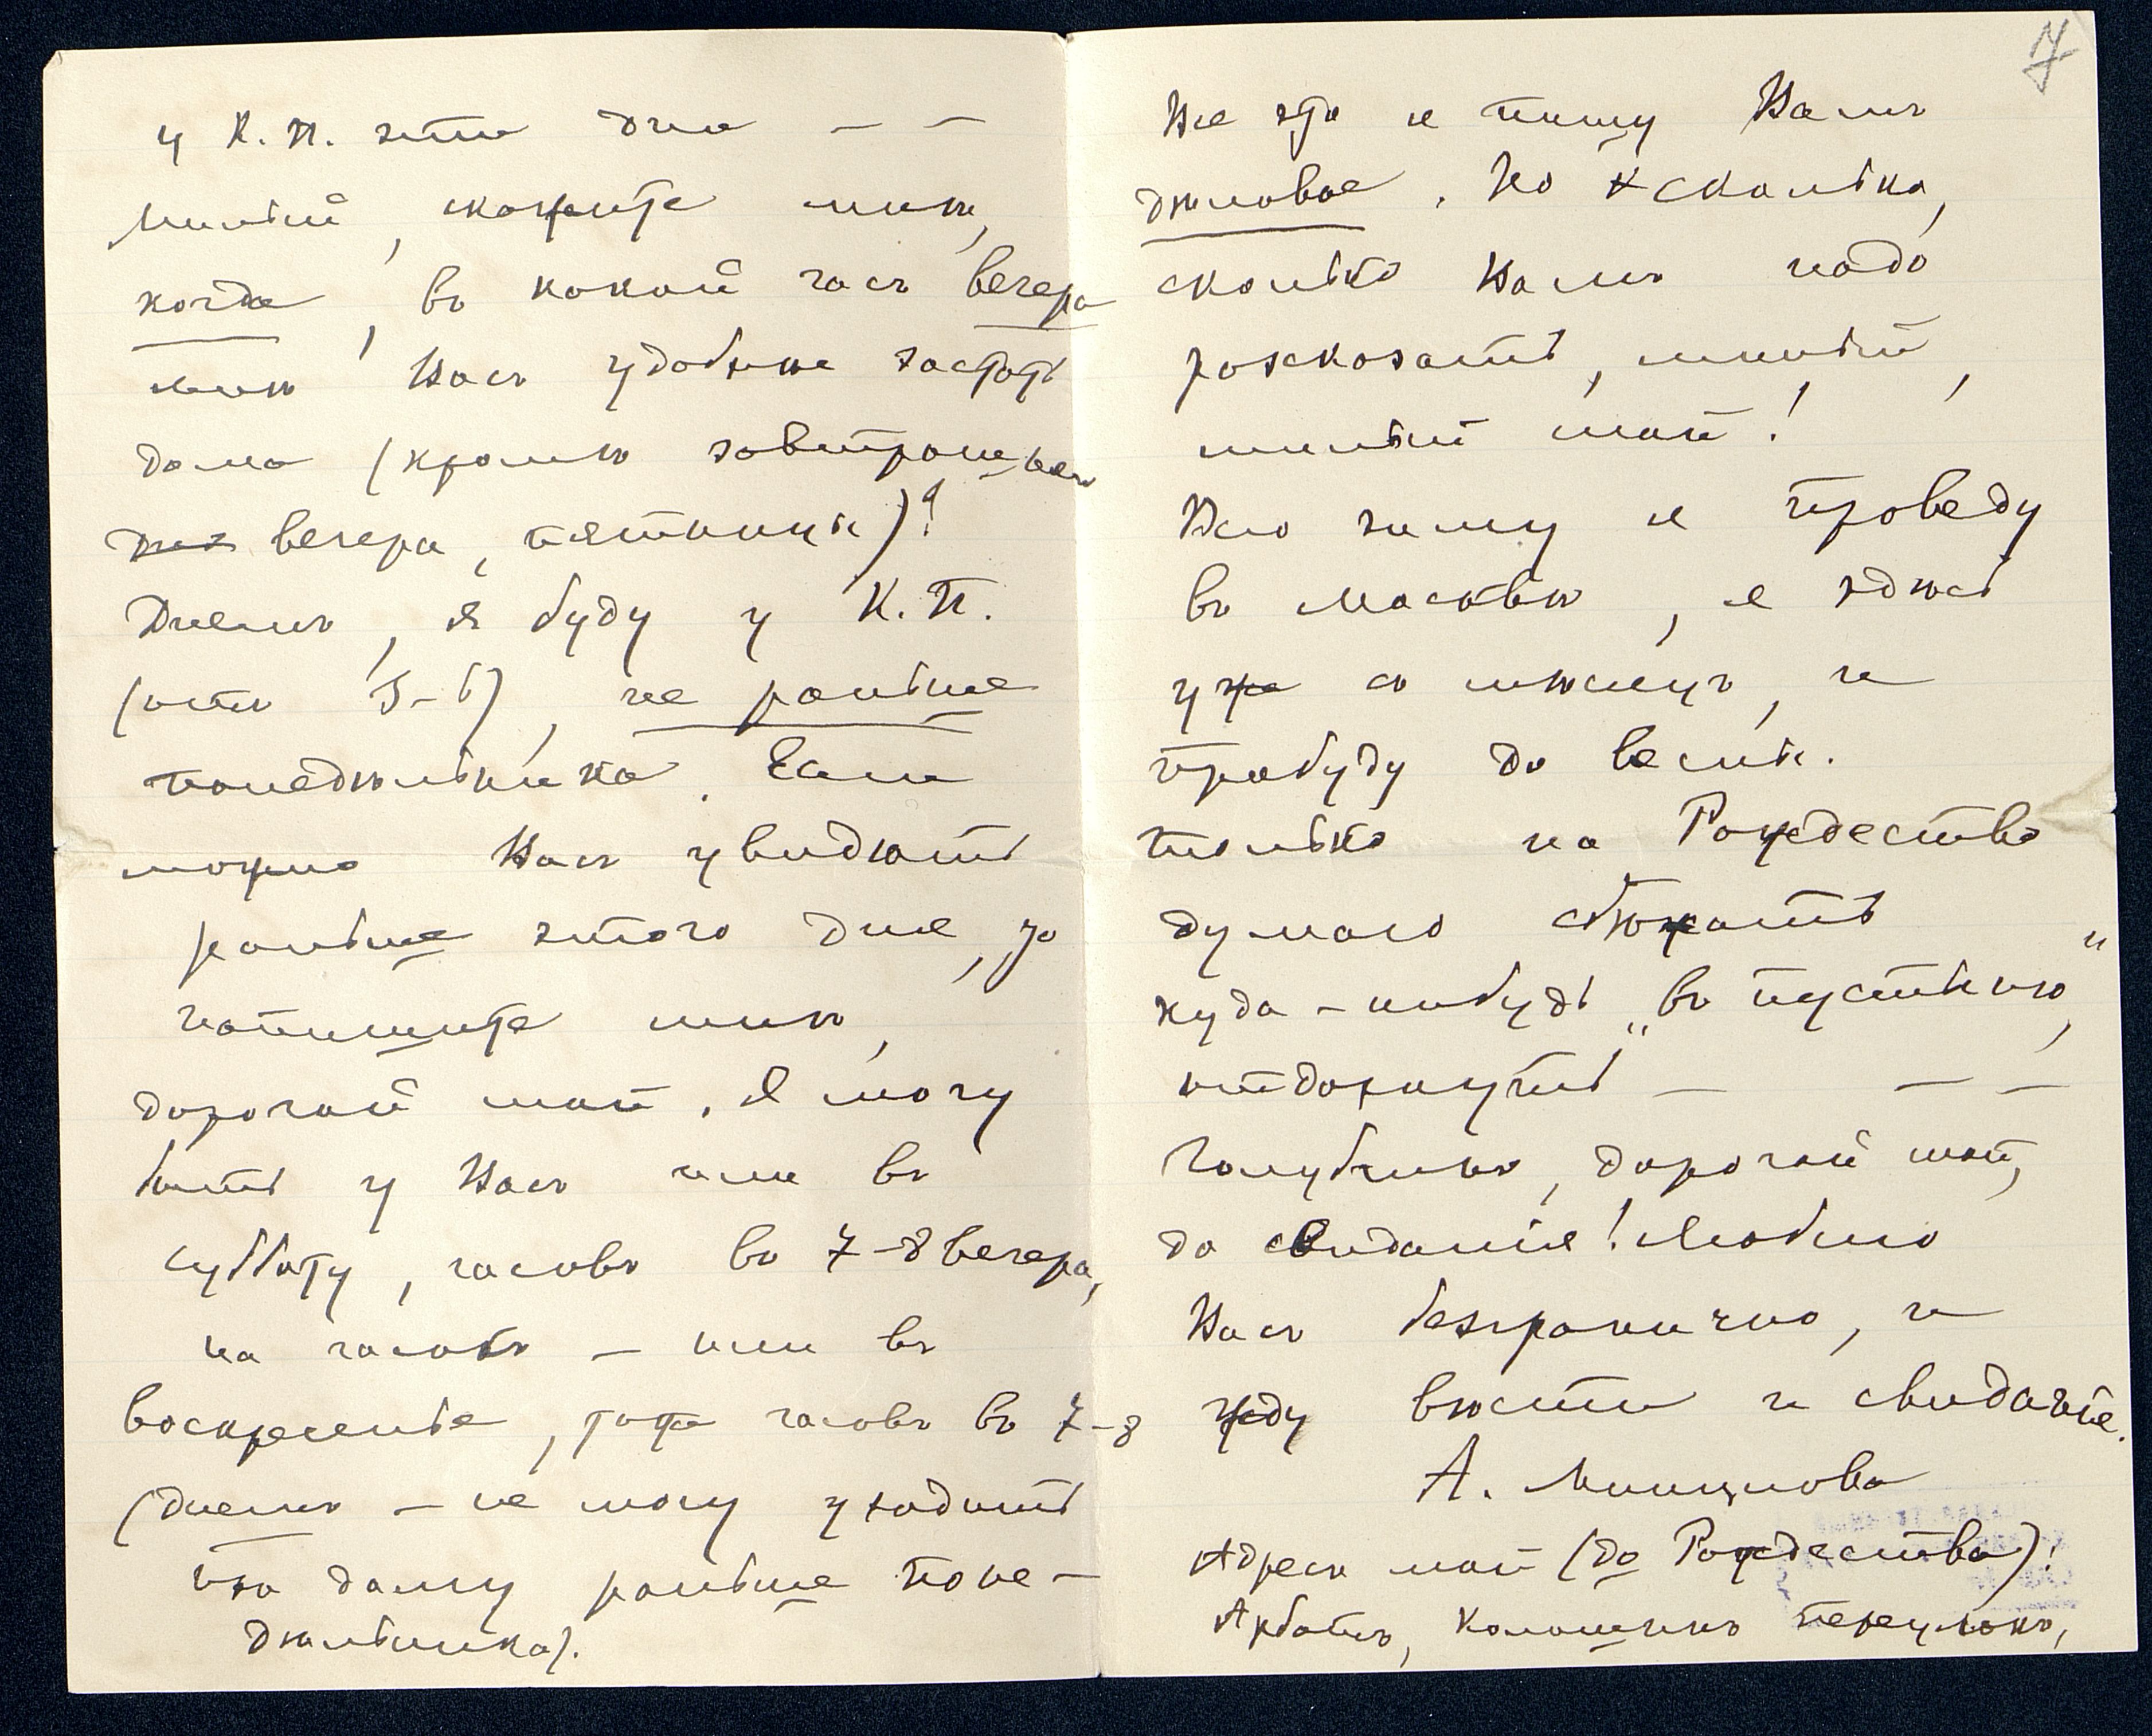 у К. П. эти дни — —
Милый, скажите мнѣ,
когда, въ какой часъ вечера
мнѣ Васъ удобнѣе застать
дома (кромѣ завтрашняго
дня вечера, пятницы)?
Днемъ, я буду у К. П.
(отъ 3-6), не раньше
понедѣльника. Если
можно Васъ увидѣть
раньше этого дня, то
напишите мнѣ,
дорогой мой. Я могу
быть у Васъ или въ
субботу, часовъ въ 7-8 вечера,
на часокъ — или въ
воскресенье, тоже часовъ въ 7-8
(днемъ — не могу уходить
изъ дому раньше поне-
дѣльника).
7
Все это я пишу Вамъ
дѣловое. Но сколько,
сколько Вамъ надо
разсказать, милый,
милый мой!
Всю зиму я проведу
въ Москвѣ, я здѣсь
уже съ мѣсяцъ, и
пробуду до весны.
Только на Рождество
думаю сбѣжать
куда-нибудь „въ пустыню“,
отдохнуть — — —
Голубчикъ, дорогой мой,
до свиданія! Люблю
Васъ безгранично, и
жду вѣсти и свиданія.
А. Минцлова
Адресъ мой (до Рождества):
Арбатъ, Калошинъ переулокъ,